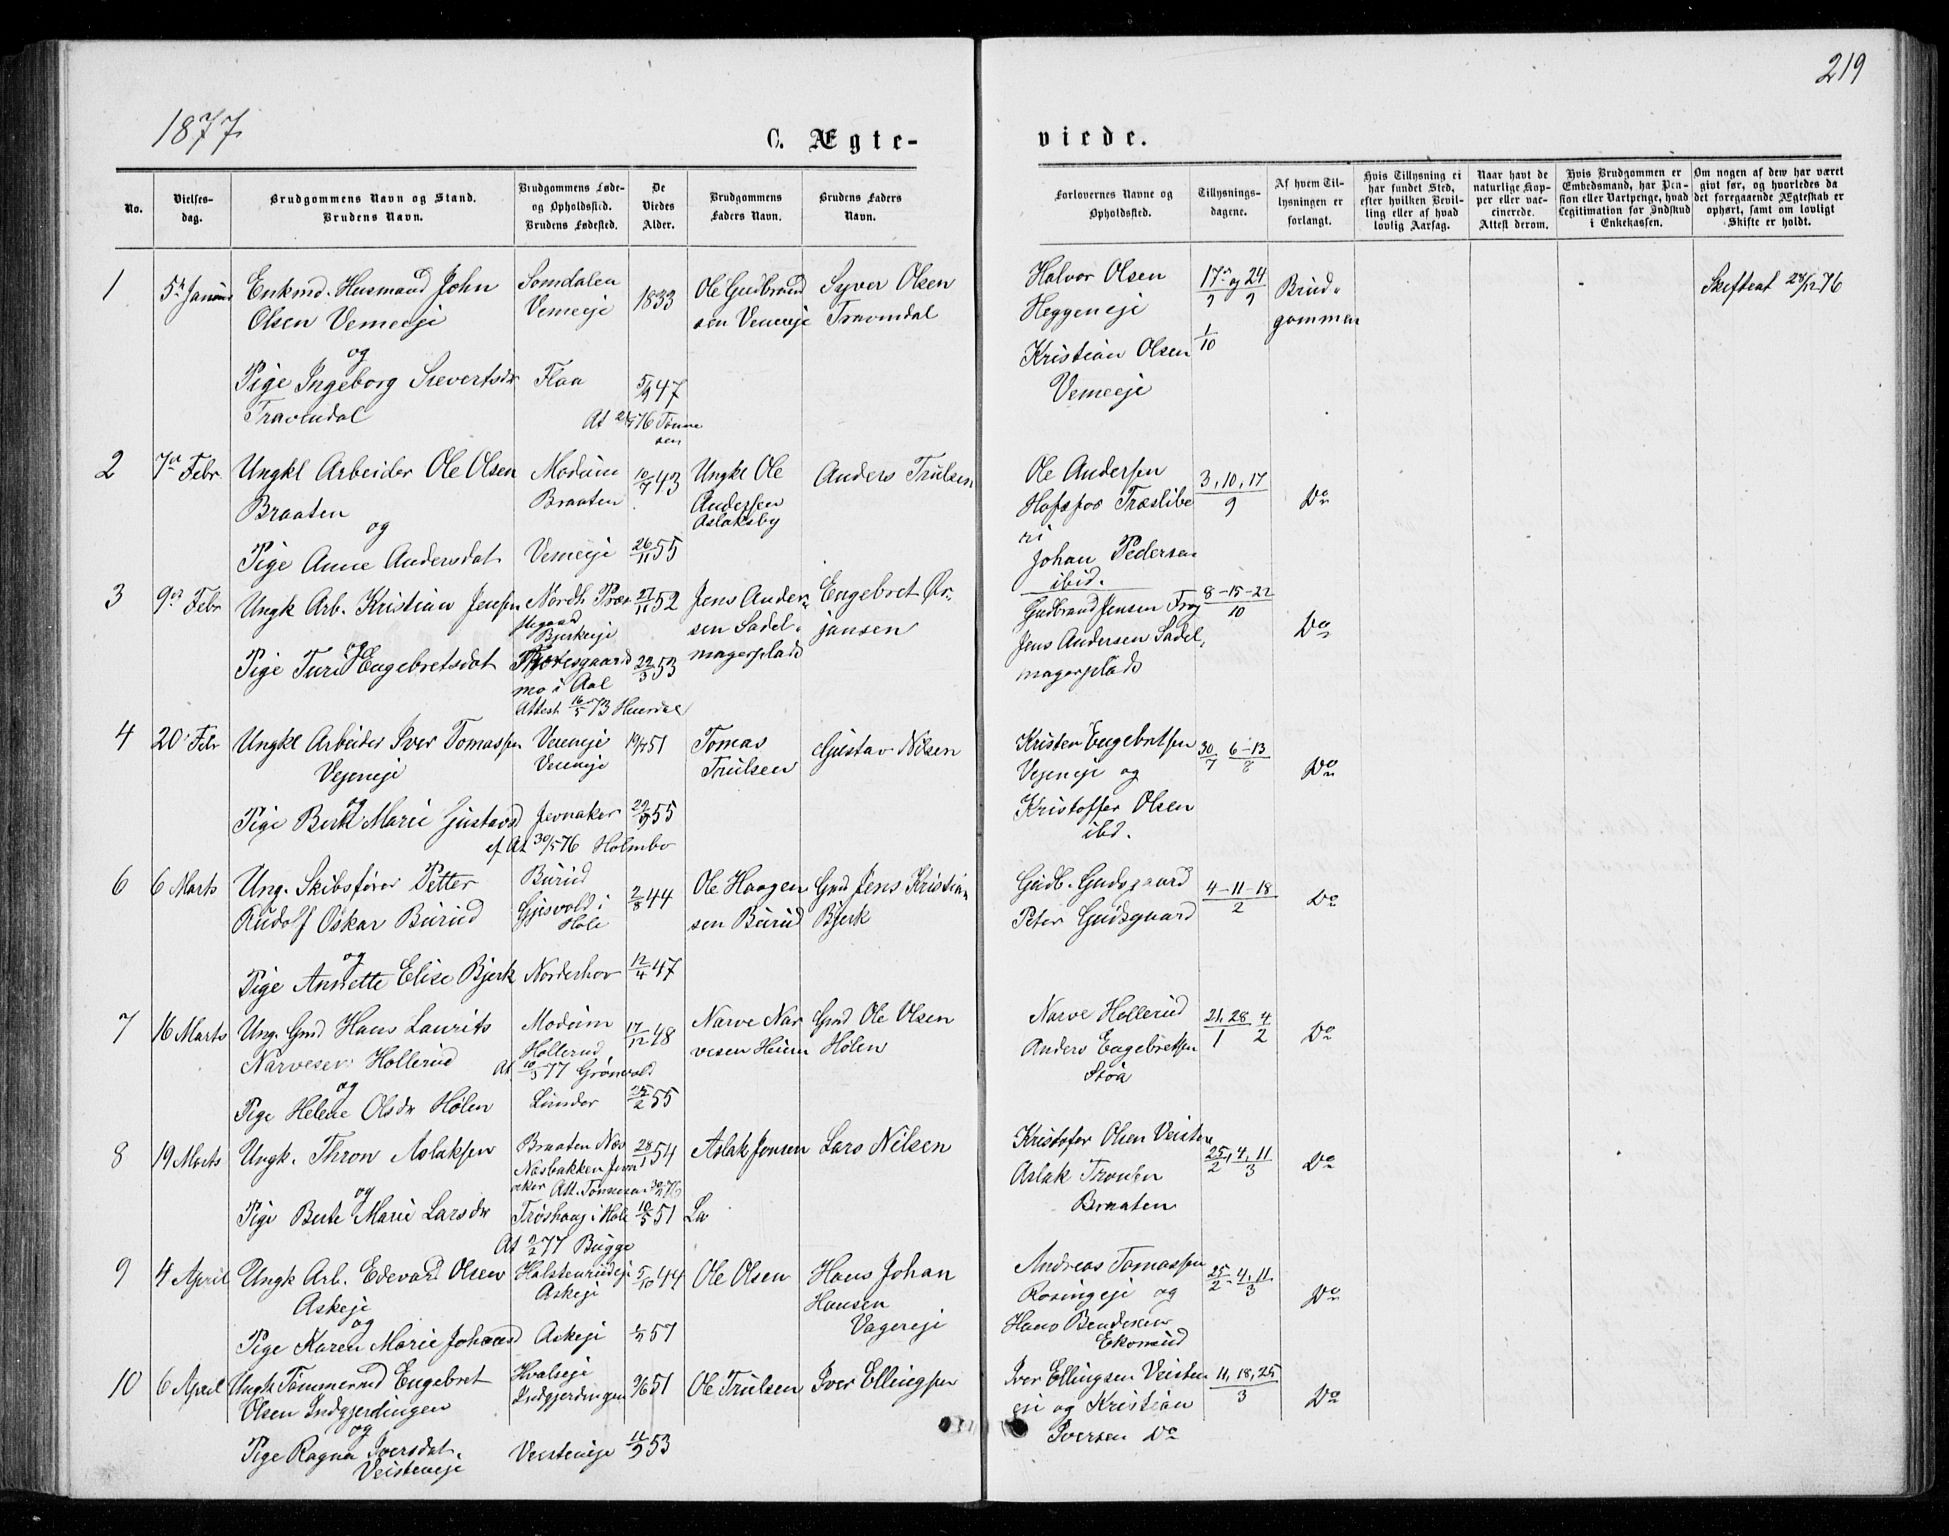 219
1877
C. Ægte-
viede.
No.
Vielses-
dag.
Brudgommens Navn og Stand.
Brudens Navn.
Brudgommens Føde-
og Opholdssted.
Brudens Fødested.
De
Viedes
Alder.
Brudgommens
Faders Navn.
Brudens Faders
Navn.
Forlovernes Navne og
Opholdssted.
Tillysnings-
dagene.
Af hvem Til-
lysningen er
forlangt.
Hvis Tillysning ei
har fundet Sted,
efter hvilken Bevil-
ling eller af hvad
lovlig Aarsag.
Naar havt de
naturlige Kop-
per eller vac-
cinerede.
Attest derom.
Hvis Brudgommen er
Embedsmand, har Pen-
sion eller Vartpenge, hvad
Legitimation for Indskud
i Enkekassen.
Om nogen af dem har været
gift før, og hvorledes da
det foregaaende Ægteskab er
ophørt, samt om lovligt
Skifte er holdt.
1
Enkmd. Husmand John
Olsen Vemeeje
og
Pige Ingeborg Sievertsdr
Travendal
Somdalen
Vemeeje
Flaa
1833
5/9 47
Ole Gudbrand
sen Vemeeje
Syver Olsen
Travndal
Halvor Olsen
Heggeneje
Kristian Olsen
Vemeeje
17de og 24/9
1/10
Brud-
gommen
Skifteat 28/12 76
2
7de Febr.
Ungkl Arbeider Ole Olsen
Braaten
og
Pige Anne Andersdat
Modum
Braaten
Vemeeje
43
26/11 55
Ungkl Ole
Andersen
Aslaksby
Anders Trulsen
Ole Andersen
Hofsfos Træslibe
ri
Johan Pedersen
ibid.
3, 10, 17/9
Do
3
9de Febr
Ungk Arb. Kristian Jensen
og
Pige Turi Engebretsdat
Nordh Præs
tegaard
Bjerkeeje
mo i Aal
Attest 16/5 73
27/11 52
53
Jens Ander-
sen Sadel-
magerplads
Engebret Ør-
jansen
Gudbrand Jensen
Jens Andersen Sadel-
magerplads
8-15-22/10
Do
4
20 Febr
Ungkl Arbeider Iver Tomassen
Vejeneje
og
Pige Berte Marie Gustavsd
Jevnaker
At 30/5 76 Holmbo
51
55
Tomas
Trulsen
Gustav Nilsen
Kristen Engebretsen
Vejeneje og
Kristoffer Olsen
ibd.
30/7 6-13/8
Do
6
6 Marts
Ung. Skibsfører Petter
Rudolf Oskar Burud
og
Pige Annette Elise Bjerk
Burud
Gjesvold i
Hole
Norderhov
2/8 44
12/4 47
Ole Haagen
sen Burud
Gmd Jens Kristian
Bjerk
Gudb. Gudsgaard
Peter Gudsgaard
4-11-18/2
Do
7
16 Marts
Ung. Gmd Hans Laurits
Narvesen Hollerud
og
Pige Helene Olsdr Hølen
Modum
Hollerud
At 10/3 77 Grønvold
Lunder
17/12 48
55
Narve Nar
vesen
Gmd Ole Olsen
Hølen
Narve Hollerud
Anders Engebretsen
Støa
21, 28/1 4/2
Do
8
19 Marts
Ungk. Thron Aslaksen
og
Pige Berte Marie Larsdr
Braaten Næs
Næsbakken Jevn
aker Att. Tønnesen
Trøshaug i Hole
At 2/2 77 Bugge
28/1 54
51
Aslak Jonsen
La
Lars Nilsen
Kristofer Olsen Veisten
Aslak Tronsen
Braaten
25/2, 4, 11/3
Do
9
4 April
Ungk Arb. Edevard Olsen
Askeje
og
Pige Karen Marie Johansd
Halstenrudeje
Askeje
Askeje
5/10 44
57
Ole Olsen
Hans Johan
Hansen
Vagereje
Andreas Tomassen
Rosingeje og
Hans Bendiksen
Ekornrud
25/2, 4, 11/3
Do
10
6 April
Ungk Tømmermd Engebret
Olsen Indgjerdingen
og
Pige Ragna Iversdat.
Veisteneje
Hvalseje
Indgjerdingen
Veisteneje
51
11/9 53
Ole Trulsen
Iver Ellingsen
Iver Ellingsen Veisten
eje og Kristian
Iversen Do
11, 18, 25/3
Do